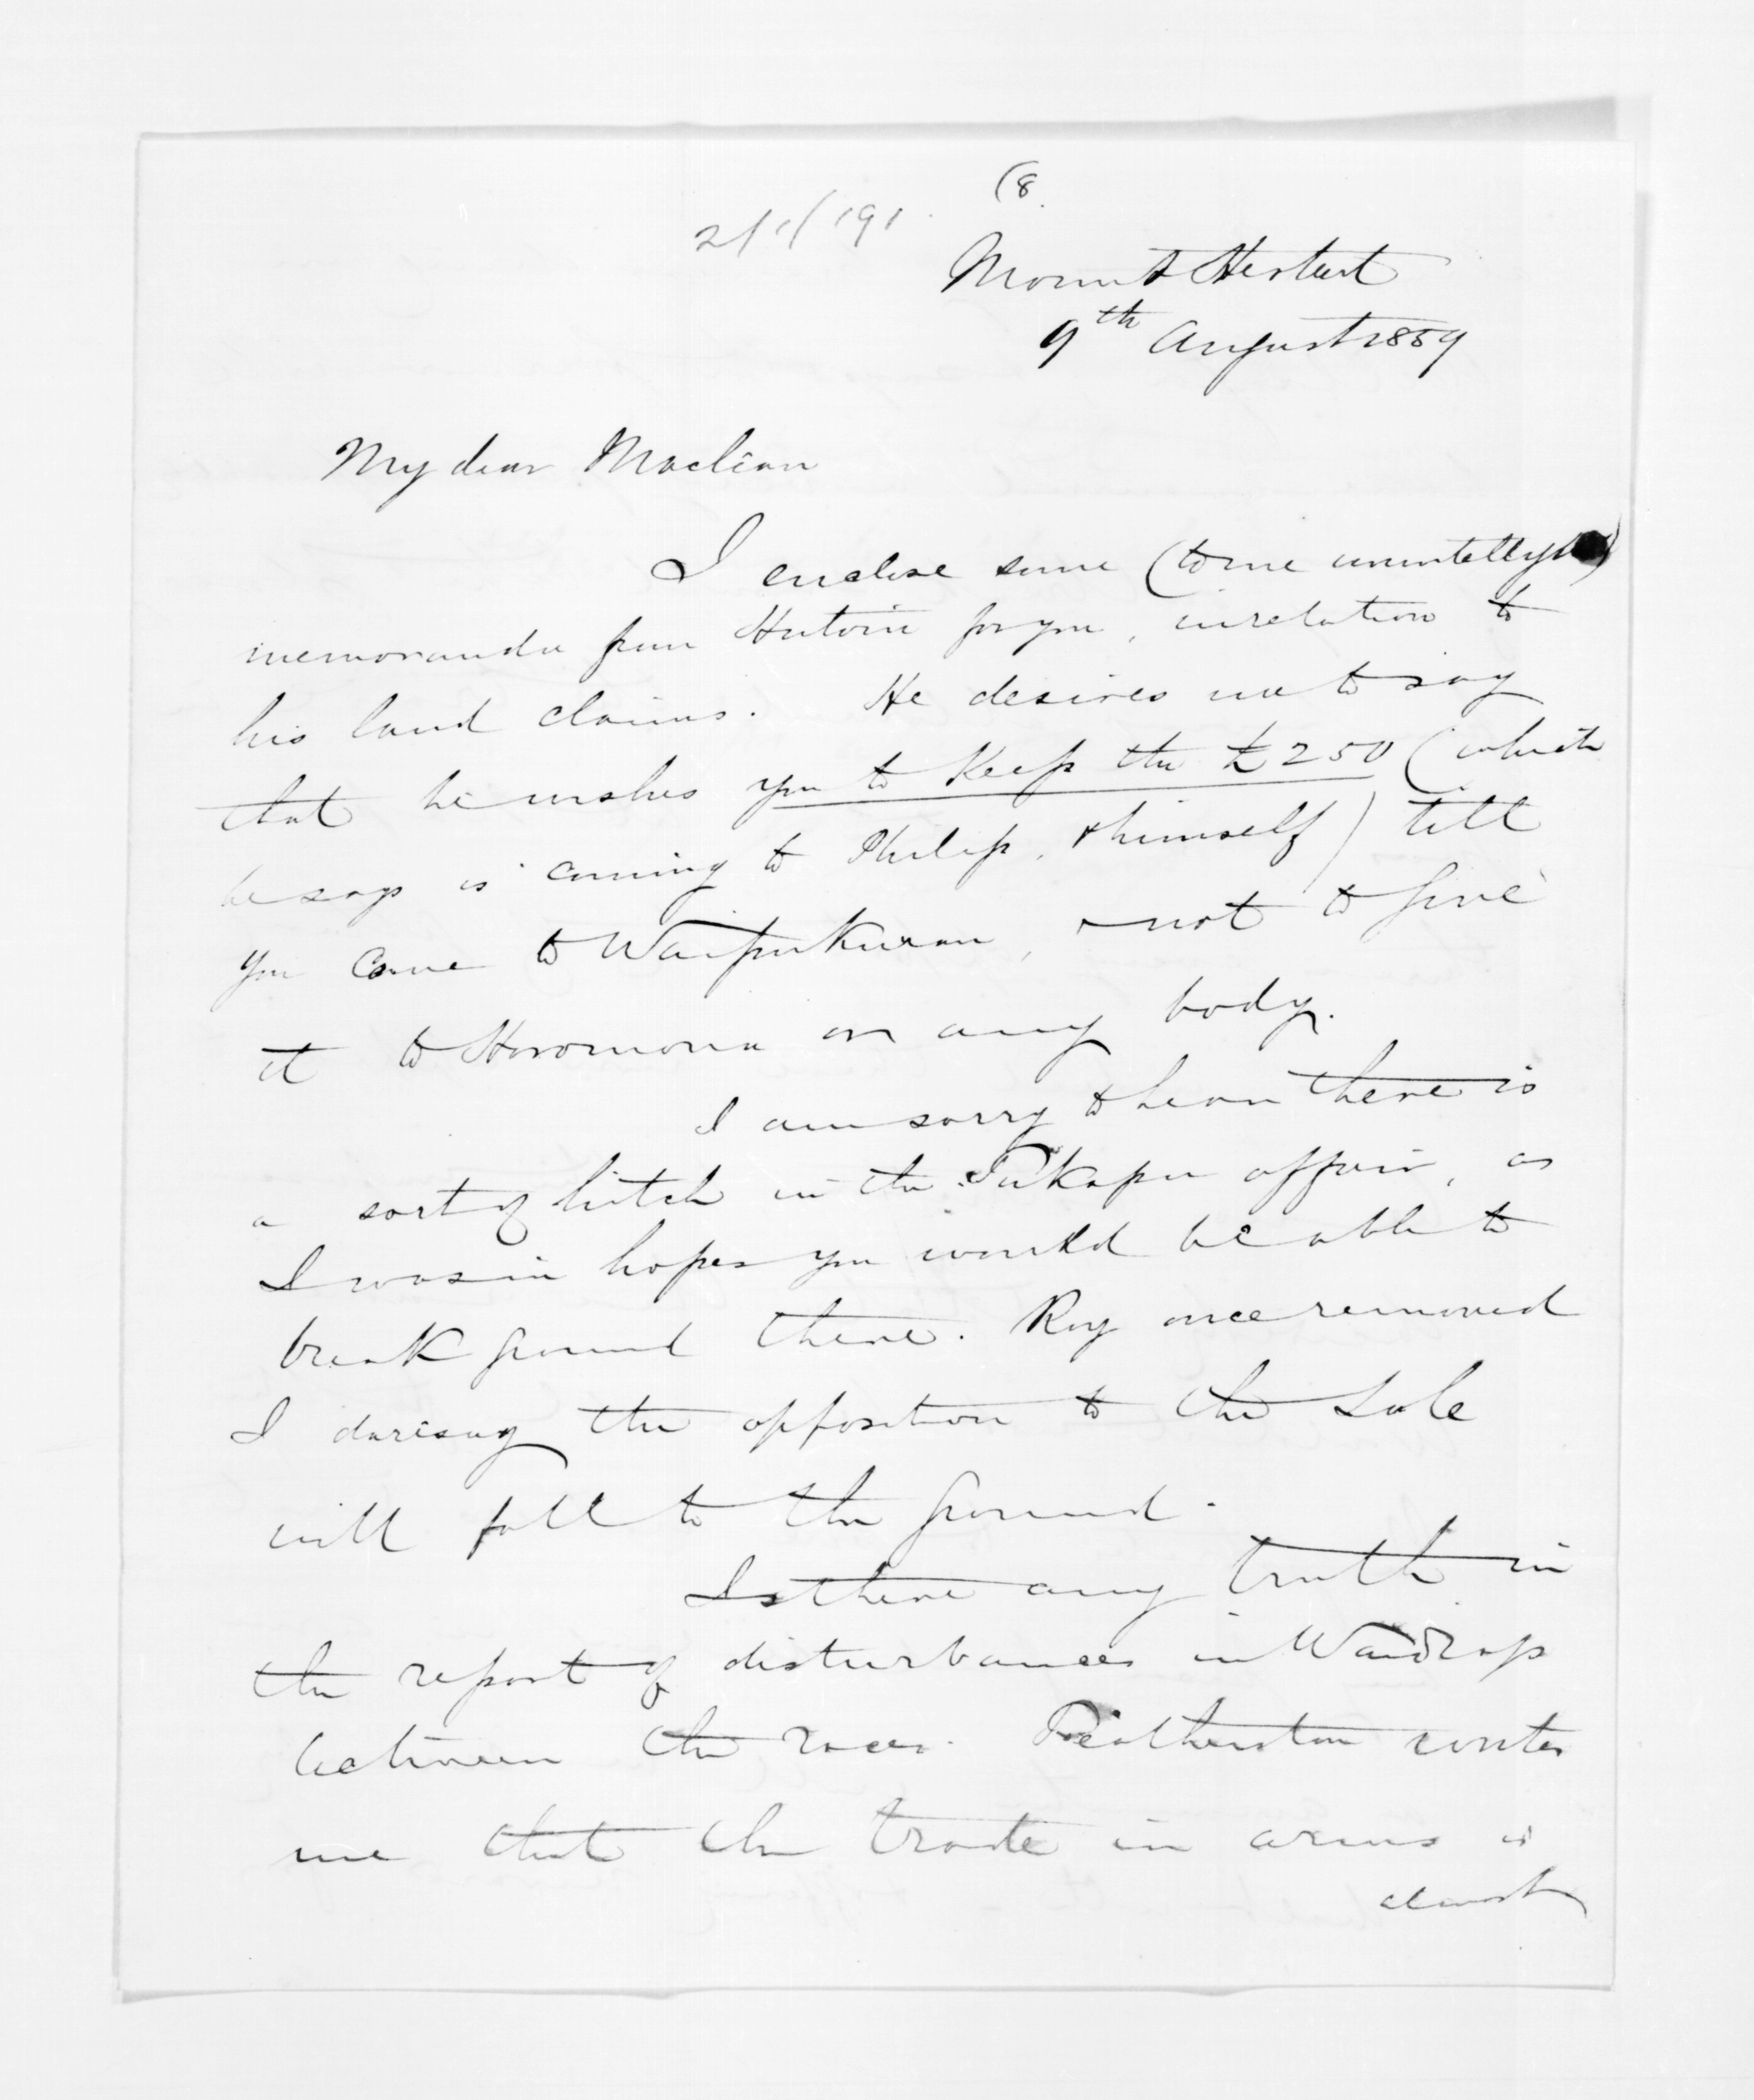 (8.
2/1/191.
Mount Herbert
9th August 1859
My dear Maclean
I enclose some (to me unintelligible)
memoranda from Hutoin for you, in relation to
his land claims. He desires me to say
that he wishes you to keep the £250 (which
he says is coming to Philip, & himself) till
you come to Waipukurau, & not to give
it to Horomona or any body.
I am sorry to hear there is
a sort of hitch in the Tukapu affair, as
I was in hopes you would be able to
break ground there. Roy once removed
I daresay the opposition to the Sale
will fall to the ground.
Is there any truth in
the report of disturbances in Waidrap
between the races. Featherston writes
me that the trade in arms is
almost